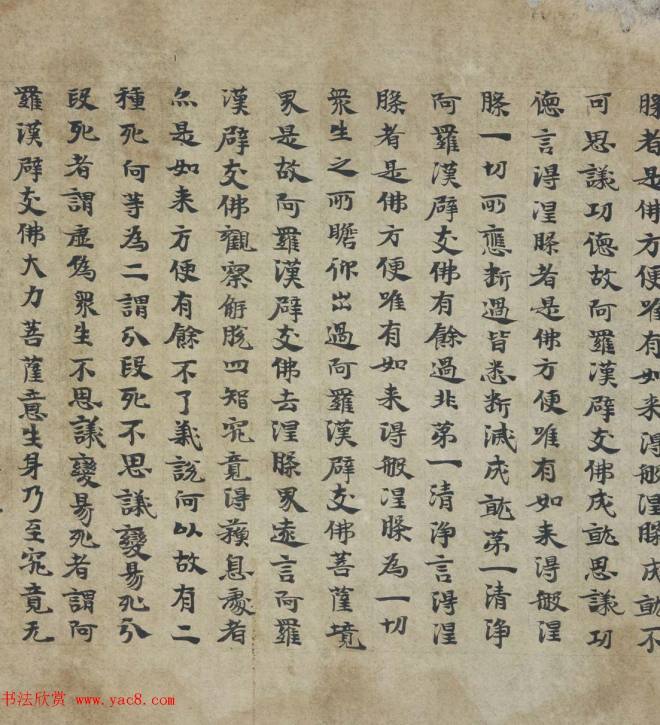 槃者是佛方便唯有如来得般涅槃成就不
可思議功德故阿羅漢辟支佛成就思議功
德言得涅槃者是佛方便唯有如来得般涅
槃一切所應斷過皆悉斷滅成就第一清淨
阿羅漢辟支佛有餘過非第一清淨言得涅
槃者是佛方便唯有如来得般涅槃為一切
衆生之所瞻仰出過阿羅漢辟支佛菩薩境
界是故阿羅漢辟支佛去涅槃界遠言阿羅
漢辟支佛觀察解脫四智究竟得蘓息處者
亦是如来方便有餘不了義說何以故有二
種死何等為二謂分段死不思議變易死分
段死者謂虛偽衆生不思議變易死者謂阿
羅漢辟支佛大力菩薩意生身乃至究竟无
书法欣赏 www.yac8.com